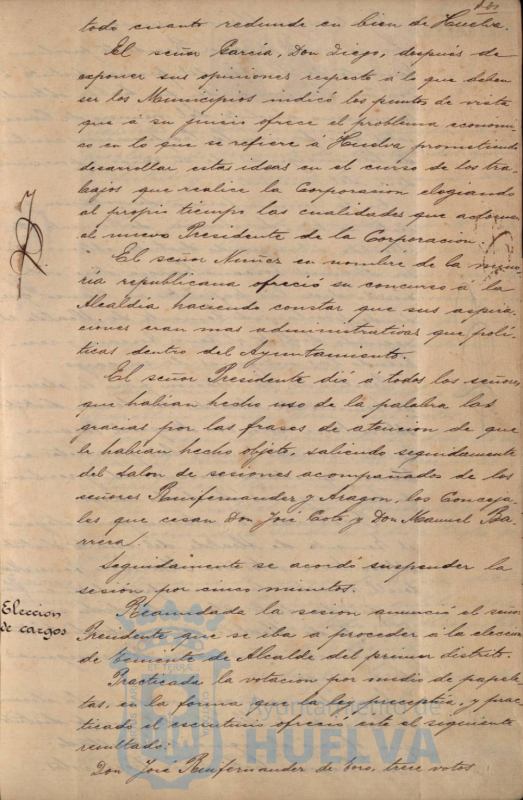 todo cuanto redunde en bien de Huelva.
El señor García, Don Diego, después de
exponer sus opiniones respecto á lo que deben
ser los Municipios indicó los puntos de vista
que á su juicio ofrece el problema económi-
co en lo que se refiere á Huelva prometiendo
desarrollar estas ideas en el curso de los tra-
bajos que realice la Corporacion elogiando
al propio tiempo las cualidades que adornan
al nuevo Presidente de la Corporacion.
El señor Nuñez en nombre de la mino-
ría republicana ofreció su concurso á la
Alcaldía haciendo constar que sus aspira-
ciones eran mas administrativas que polí-
ticas dentro del Ayuntamiento.
El señor Presidente dió á todos los señores
que habian hecho uso de la palabra las
gracias por las frases de atencion de que
le habian hecho objeto, saliendo seguidamente
del salon de sesiones acompañados de los
señores Renfernandez y Aragon, los Conceja-
les que cesan Don José Coto y Don Manuel Ba-
rrera.
Seguidamente se acordó suspender la
sesión por cinco minutos.
Eleccion
de cargos
Reanudada la sesion anunció el señor
Presidente que se iba á proceder á la eleccion
de Teniente de Alcalde del primer distrito.
Practicada la votacion por medio de papele-
tas, en la forma que la ley preceptúa, y prac-
ticado el escrutinio ofreció este el siguiente
resultado:
Don José Renfernandez de Toro, trece votos
Ayuntamiento de
HUELVA